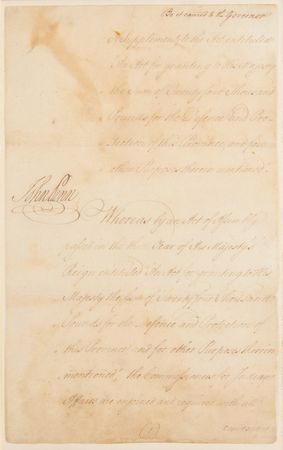 Be it carried to the Governor
A Supplement to the Act entituled
An Act for granting to his Majesty
the Sum of Twenty four Thousand
Pounds for the Defence and Pro-
tection of this Province and for
other Purposes therein mentioned.
John Penn
Whereas by an Act of Assembly
passed in the third Year of His Majesty's
Reign entituled An Act for granting to His
Majesty the Sum of Twenty four Thousand
Pounds for the Defence and Protection of
this Province and for other Purposes therein
mentioned, the Commissioners for Indian
Affairs are impowered and required with all